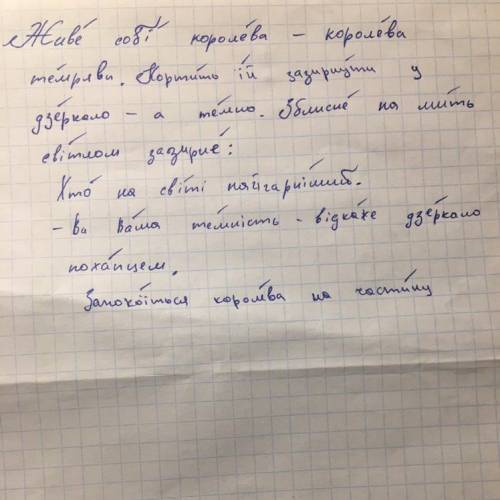 Живе́ собі́ короле́ва – короле́ва
те́мряви. Корти́ть їй зазирну́ти у
дзе́ркало – а те́мно. Збли́сне на ми́ть
сві́тлом зази́рне́:
Хто́ на сві́ті найгарні́ший.
– Ви Ва́ша те́мність – відка́же дзе́ркало
поха́пцем.
Запоко́їться короле́ва на части́ну